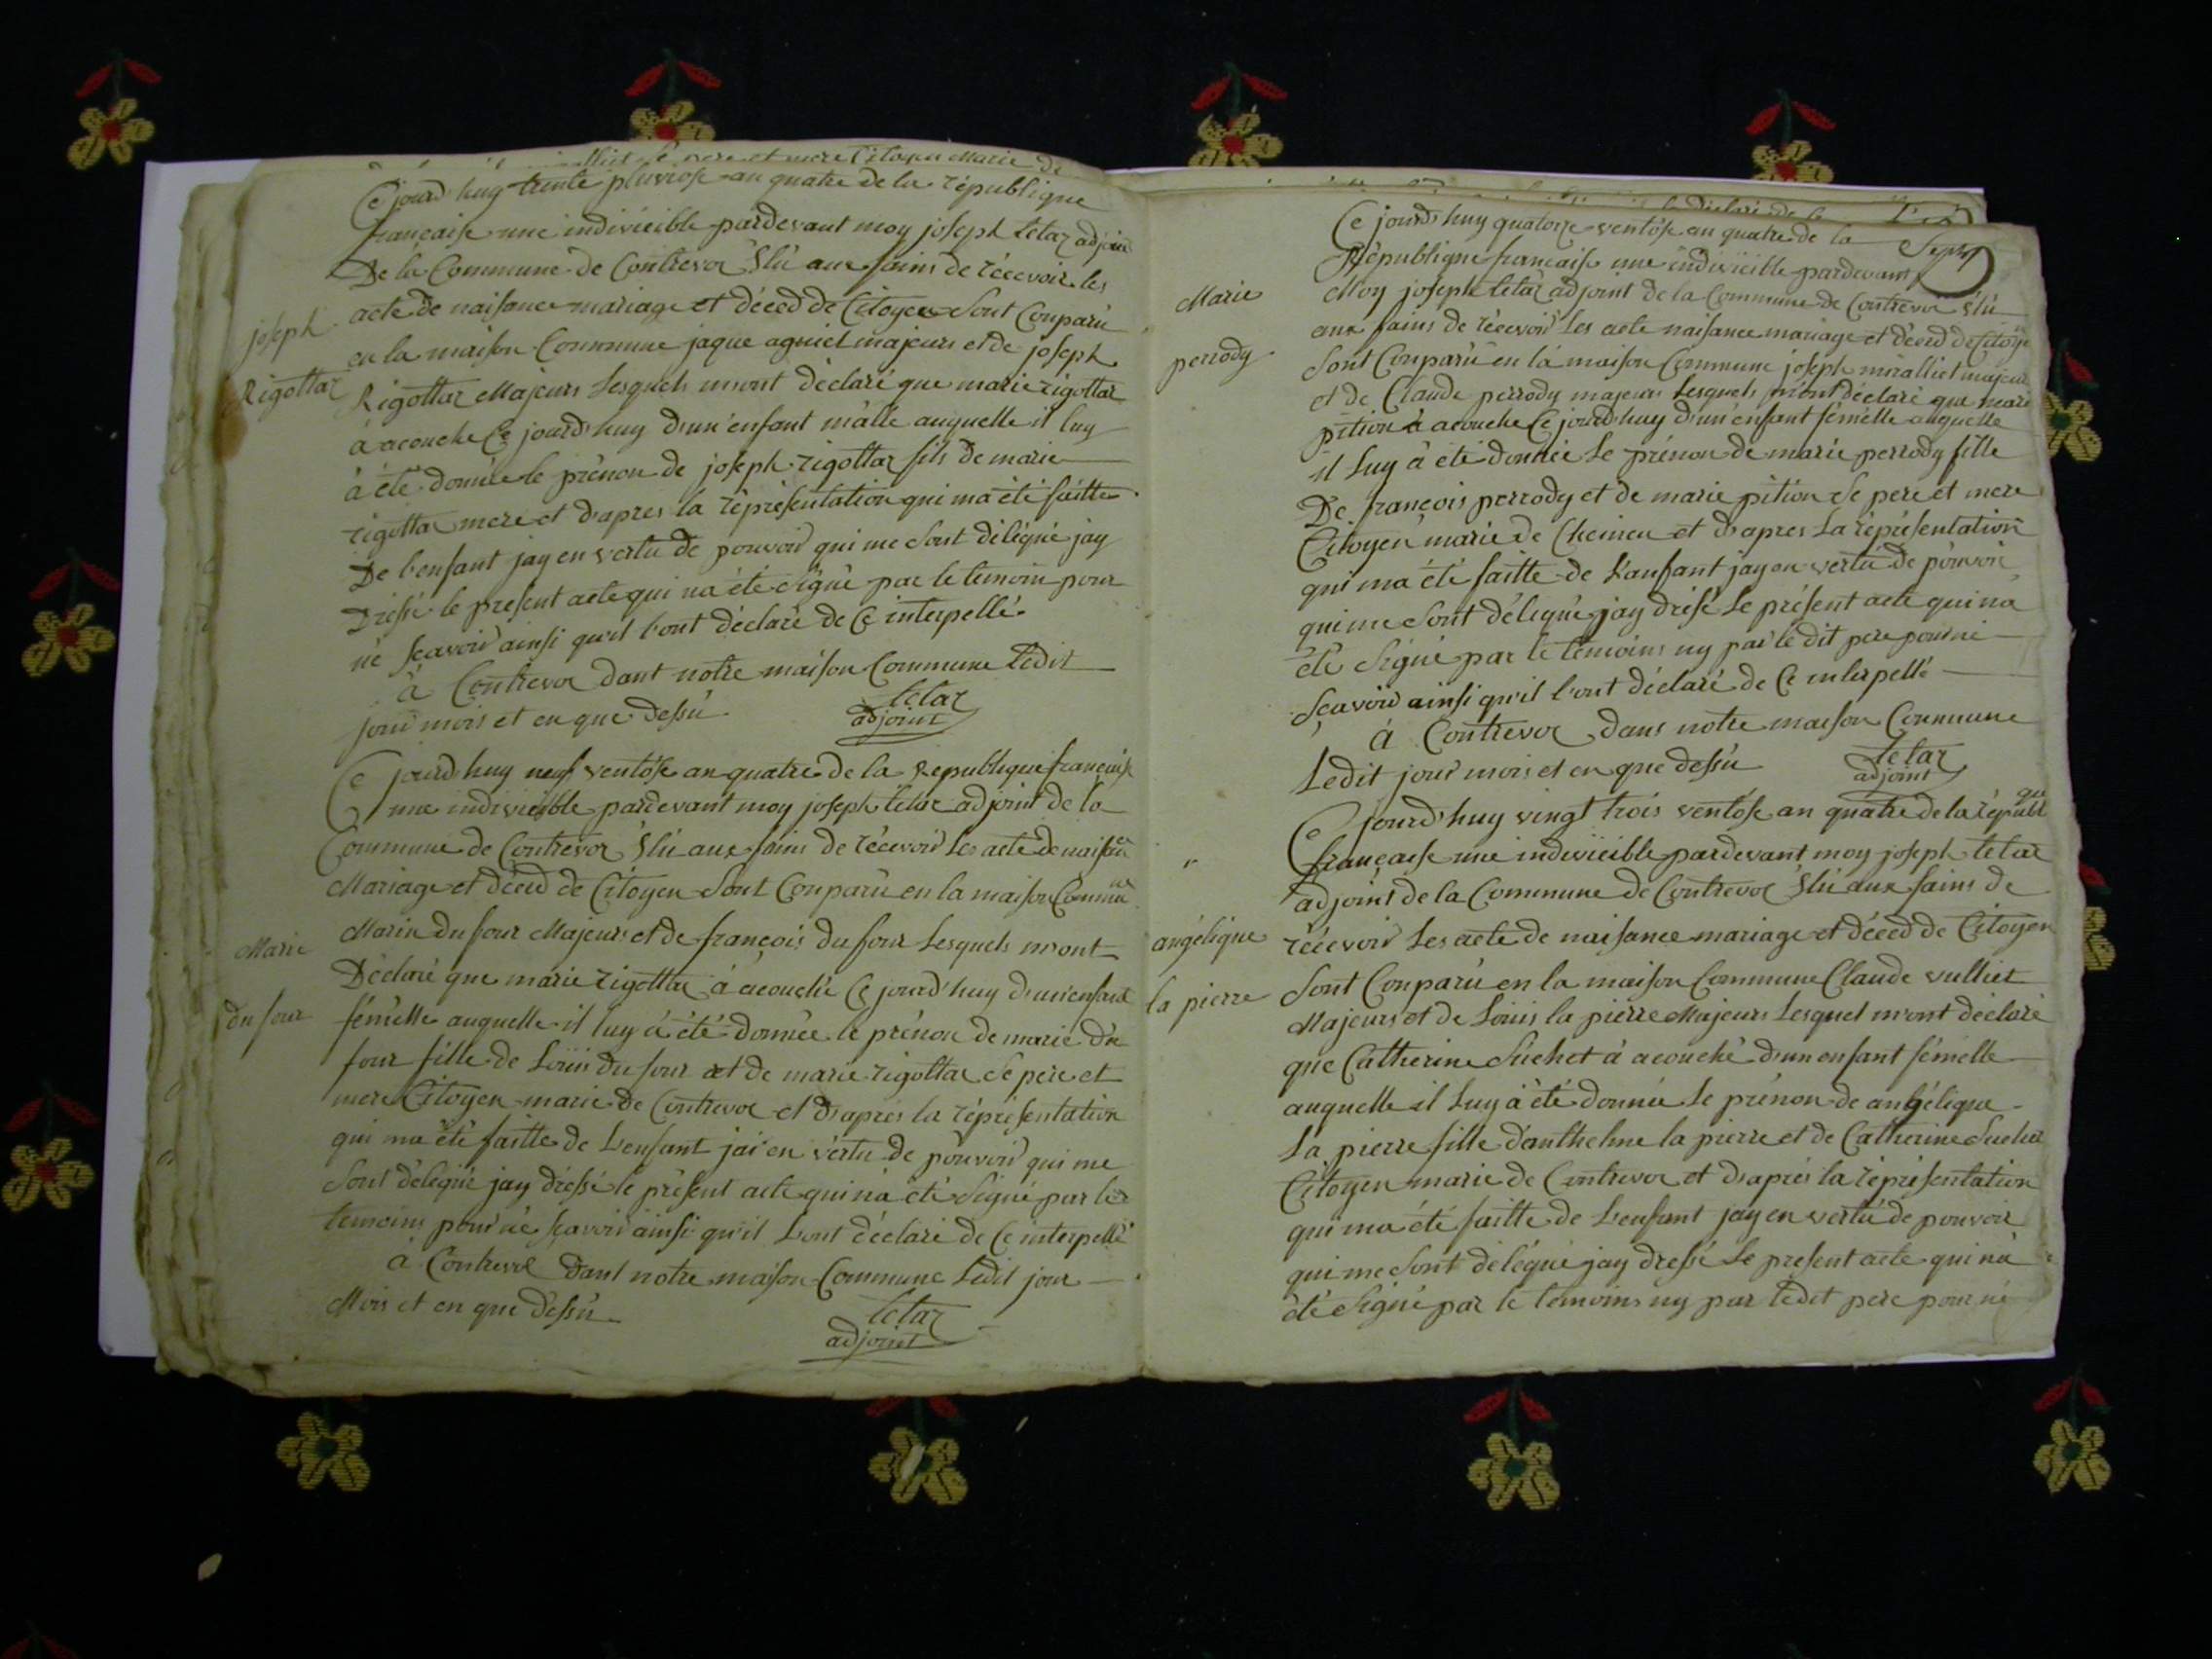 Ce jourd'huy trente pluviose an quatre de la république
française une indivicible pardevant moy joseph tetaz adjoint
De la Commune de Contrevoz Élü aux fains de récevoir les
joseph
acte de naisance mariage et décéd de Citoyen Sont Conparü
en la maison Commune jaque agniel majeurs et de joseph
Rigottaz
Rigottaz Majeurs Lesquels m'ont déclaré que marie rigottaz
à acouche Ce jourd'huy d'un énfant mâlle auquelle il luy
à été donnée le prénon de joseph rigottaz fils de marie
rigottaz mere et d'apres la réprésentation qui ma été faitte
De l'enfant jay en vertu de pouvoir qui me sont déléqué jay
Dressé le present acte qui na été signé par le temoin pour
né scavoir ainsi qu'il l'ont déclaré de Ce interpellé
à Contrevoz dant notre maison Commune Ledit
jour mois et en que dessü
tetaz
adjoint
Ce jourd'huy neuf ventôse an quatre de la Republique française
une indivicible pardevant moy joseph tetaz adjoint de la
Commune de Contrevoz Élü aux fains de récevoir Les acte de naisance
Mariage et décéd de Citoyen Sont Conparü en la maison Commune
Marin du four Majeurs et de françois du four Lesquels m'ont
Marie
Déclaré que marie rigottaz à acouchée Ce jourd'huy d'un enfant
du four
fémelle auquelle il luy à été donnée le prénon de marie du
four fille de Loüis du four et de marie rigottaz Se pere et
mere Citoyen marie de Contrevoz et d'après la réprésentation
qui ma été faitte de L'enfant jai en vértu de pouvoir qui me
Sont déleqüé jay dressé le présent acte qui na été Signé par le
temoins pour né scavoir ainsi qu'il L'ont déclaré de Ce interpellé
à Contrevoz dant notre maison Commune Ledit jour
Mois et en que dessü
tetaz
adjoint
Sept
Ce jourd'huy quatorze ventôse an quatre de la
République francaise une indivicible pardevant
Marie
Moy joseph tetaz adjoint de la Commune de Contrevoz Élü
aux fains de récevoir Les acte naisance mariage et décéd de Citoyen
perrody
Sont Conparü en la maison Commune joseph miralliet majeur
et de Claude perrody majeurs Lesquels m'ont déclaré que marie
pition à acouche Ce jourd'huy d'un énfant fémelle auquelle
il Luy à été donnée Le prénon de marie perrody fille
De françois perrody et de marie pition Se pere et mere
Citoyen marie de Cheinieu et d'apres La réprésentation
qui ma été faitte de L'anfant jay en vertü de pouvoir
qui me Sont déleqüé jay drésé Le présent acte qui na
été Signé par le temoins ny par le dit pere pour né
Scavoir ainsi qu'il l'ont déclaré de Ce interpellé
à Contrevoz dans notre maison Commune
Ledit jour mois et en que dessü
tetaz
adjoint
Ce jourd'huy vingt trois ventôse an quatre de la républque
française une indivicible pardevant moy joseph tetaz
adjoint de la Commune de Contrevoz Élü aux fains de
angélique
récevoir Les acte de naisance mariage et décéd de Citoyen
la pierre
Sont Conparü en la maison Commune Claude vulliet
Majeurs et de Loüis la pierre Majeurs Lesquel m'ont déclaré
que Catherine Suchet à acouché d'un enfant fémelle
auquelle il Luy à été donnée Le prénon de angélique
La pierre fille d'anthelme la pierre et de Catherine Suchet
Citoyen marie de Contrevoz et d'après la réprésentation
qui ma été faitte de L'enfant jay en vertü de pouvoir
qui me Sont déléqué jay dressé Le present acte qui na
été Signé par le temoins ny par Ledit pere pour né